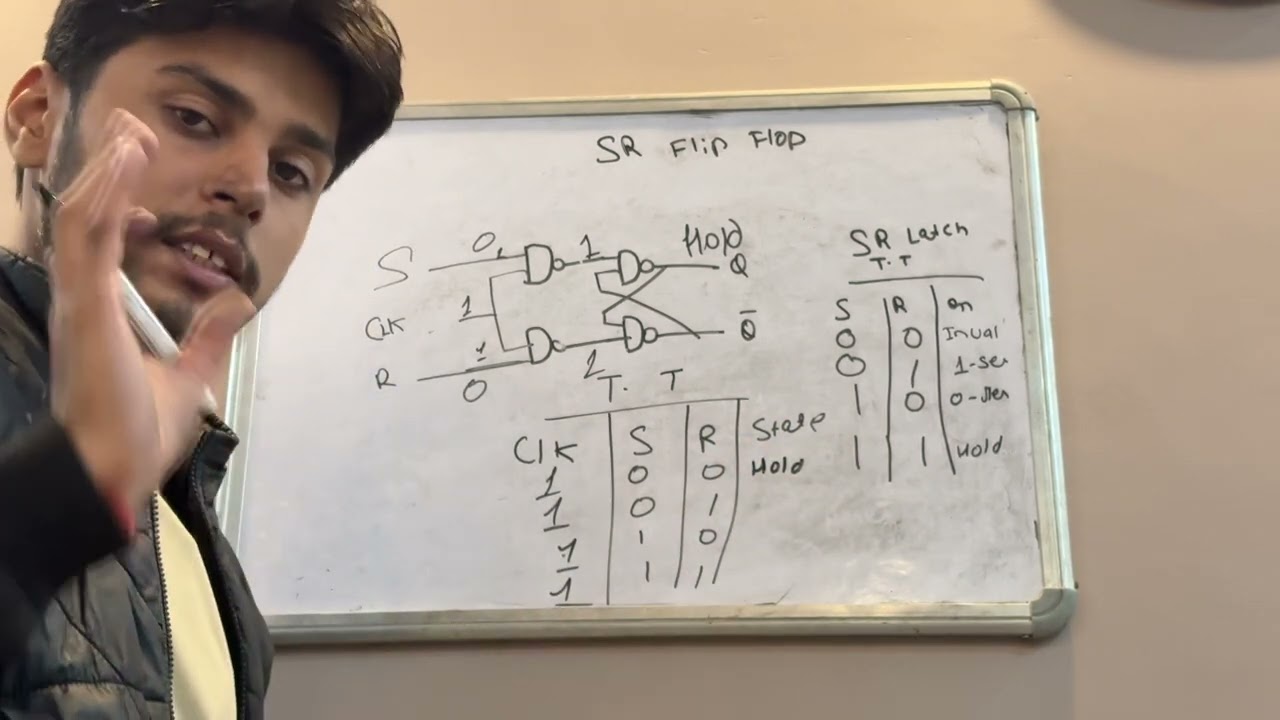 SR Flip Flop
S 0 1 Hold Q
CLK 1
R 1 0 1 Q̅
SR Latch
T.T
S R Qn
0 0 Inval
0 1 1-set
1 0
1 1 Hold
T. T
Clk S R State
1 0 0 Hold
1 0 1
1 1 0
1 1 1